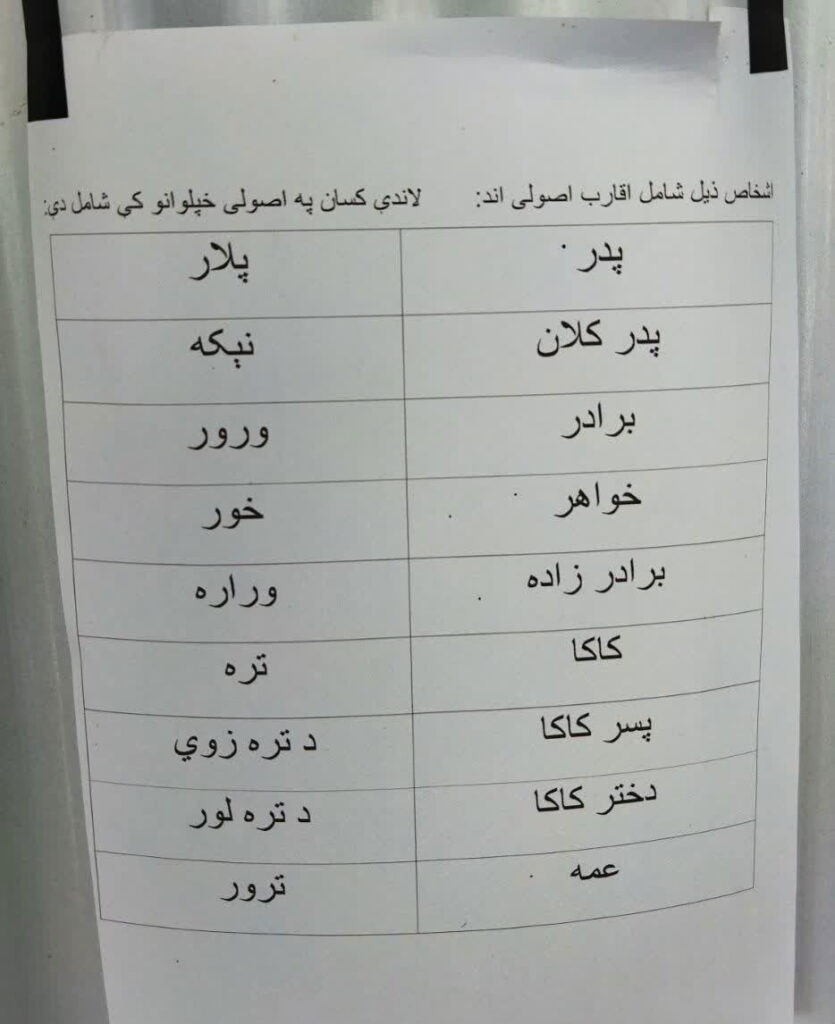 اشخاص ذیل شامل اقارب اصولی اند: لاندې کسان په اصولی خپلوانو کې شامل دي:
پدر پلار
پدر کلان نېکه
برادر ورور
خواهر خور
برادر زاده وراره
کاکا تره
پسر کاکا د تره زوي
دختر کاکا د تره لور
عمه ترور